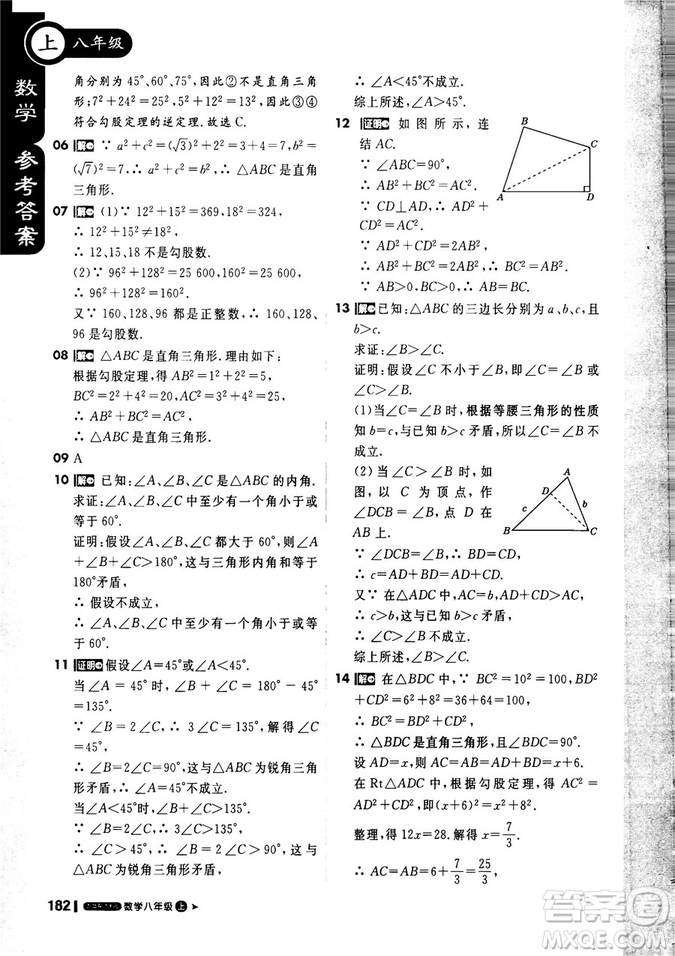 上 八年级
数学 参考答案
角分别为45°、60°、75°,因此②不是直角三角
形;7²+24²=25²,5²+12²=13²,因此③④
符合勾股定理的逆定理.故选C.
06 解 ∵ a²+c²=(√3)²+2²=3+4=7,b²=
(√7)²=7,∴ a²+c²=b²,∴ △ABC是直角
三角形.
07 解 (1)∵ 12²+15²=369,18²=324,
∴ 12²+15²≠18².
∴ 12、15、18不是勾股数.
(2)∵ 96²+128²=25 600,160²=25 600,
∴ 96²+128²=160².
又∵ 160、128、96都是正整数,∴ 160、128、
96是勾股数.
08 解 △ABC是直角三角形.理由如下:
根据勾股定理,得AB²=1²+2²=5,
BC²=2²+4²=20,AC²=3²+4²=25,
∴ AB²+BC²=AC²,
∴ △ABC是直角三角形.
09 A
10 解 已知:∠A、∠B、∠C是△ABC的内角.
求证:∠A、∠B、∠C中至少有一个角小于或
等于60°.
证明:假设∠A、∠B、∠C都大于60°,则∠A
+∠B+∠C>180°,这与三角形内角和等于
180°矛盾,
∴ 假设不成立,
∴ ∠A、∠B、∠C中至少有一个角小于或等
于60°.
11 证明 假设∠A=45°或∠A<45°.
当∠A=45°时,∠B+∠C=180°-45°=
135°,∵ ∠B=2∠C,∴ 3∠C=135°,解得∠C
=45°,
∴ ∠B=2∠C=90°,这与△ABC为锐角三
角形矛盾,∴ ∠A=45°不成立.
当∠A<45°时,∠B+∠C>135°.
∵ ∠B=2∠C,∴ 3∠C>135°,∴ ∠C>45°,
∴ ∠B>90°.
这与△ABC为锐角三角形矛盾,
182 数学八年级 上
∴ ∠A<45°不成立.
综上所述,∠A>45°.
12 证明 如图所示,连
结AC.
∵ ∠ABC=90°,
∴ AB²+BC²=AC².
∵ CD⊥AD,∴ AD²+CD²=AC².
∵ AD²+CD²=2AB²,
∴ AB²+BC²=2AB²,∴ BC²=AB².
∵ AB>0,BC>0,∴ AB=BC.
A B C D
13 解 已知:△ABC的三边长分别为a、b、c,且
b>c.
求证:∠B>∠C.
证明:假设∠B>∠C不成立,即∠B=∠C或
∠B<∠C.
(1)当∠B=∠C时,根据等腰三角形的性质
知b=c,与已知b>c矛盾,所以∠B=∠C不
成立.
(2)当∠B<∠C时,如图所
示,以C为顶点,作
∠DCB=∠B,点D在
AB上.
A D c b B C
∵ ∠DCB=∠B,∴ BD=CD,
∴ c=AD+BD=AD+CD.
又∵ 在△ADC中,AD+CD>AC=b,
∴ c>b,这与已知b>c矛盾,∴ ∠B<∠C不
成立.
综上所述,∠B>∠C.
14 解 在△BDC中,∵ BC²=10²=100,
BD²+CD²=6²+8²=36+64=100,
∴ BC²=BD²+CD²,
∴ △BDC是直角三角形,且∠BDC=90°.
设AD=x,则AC=AB=x+6.
在Rt△ADC中,根据勾股定理,得AC²=
AD²+CD²,即(x+6)²=x²+8².
整理,得12x=28.解得x=7/3.
∴ AC=AB=AD+6=7/3+6=25/3.
答案圈
MXQE.COM